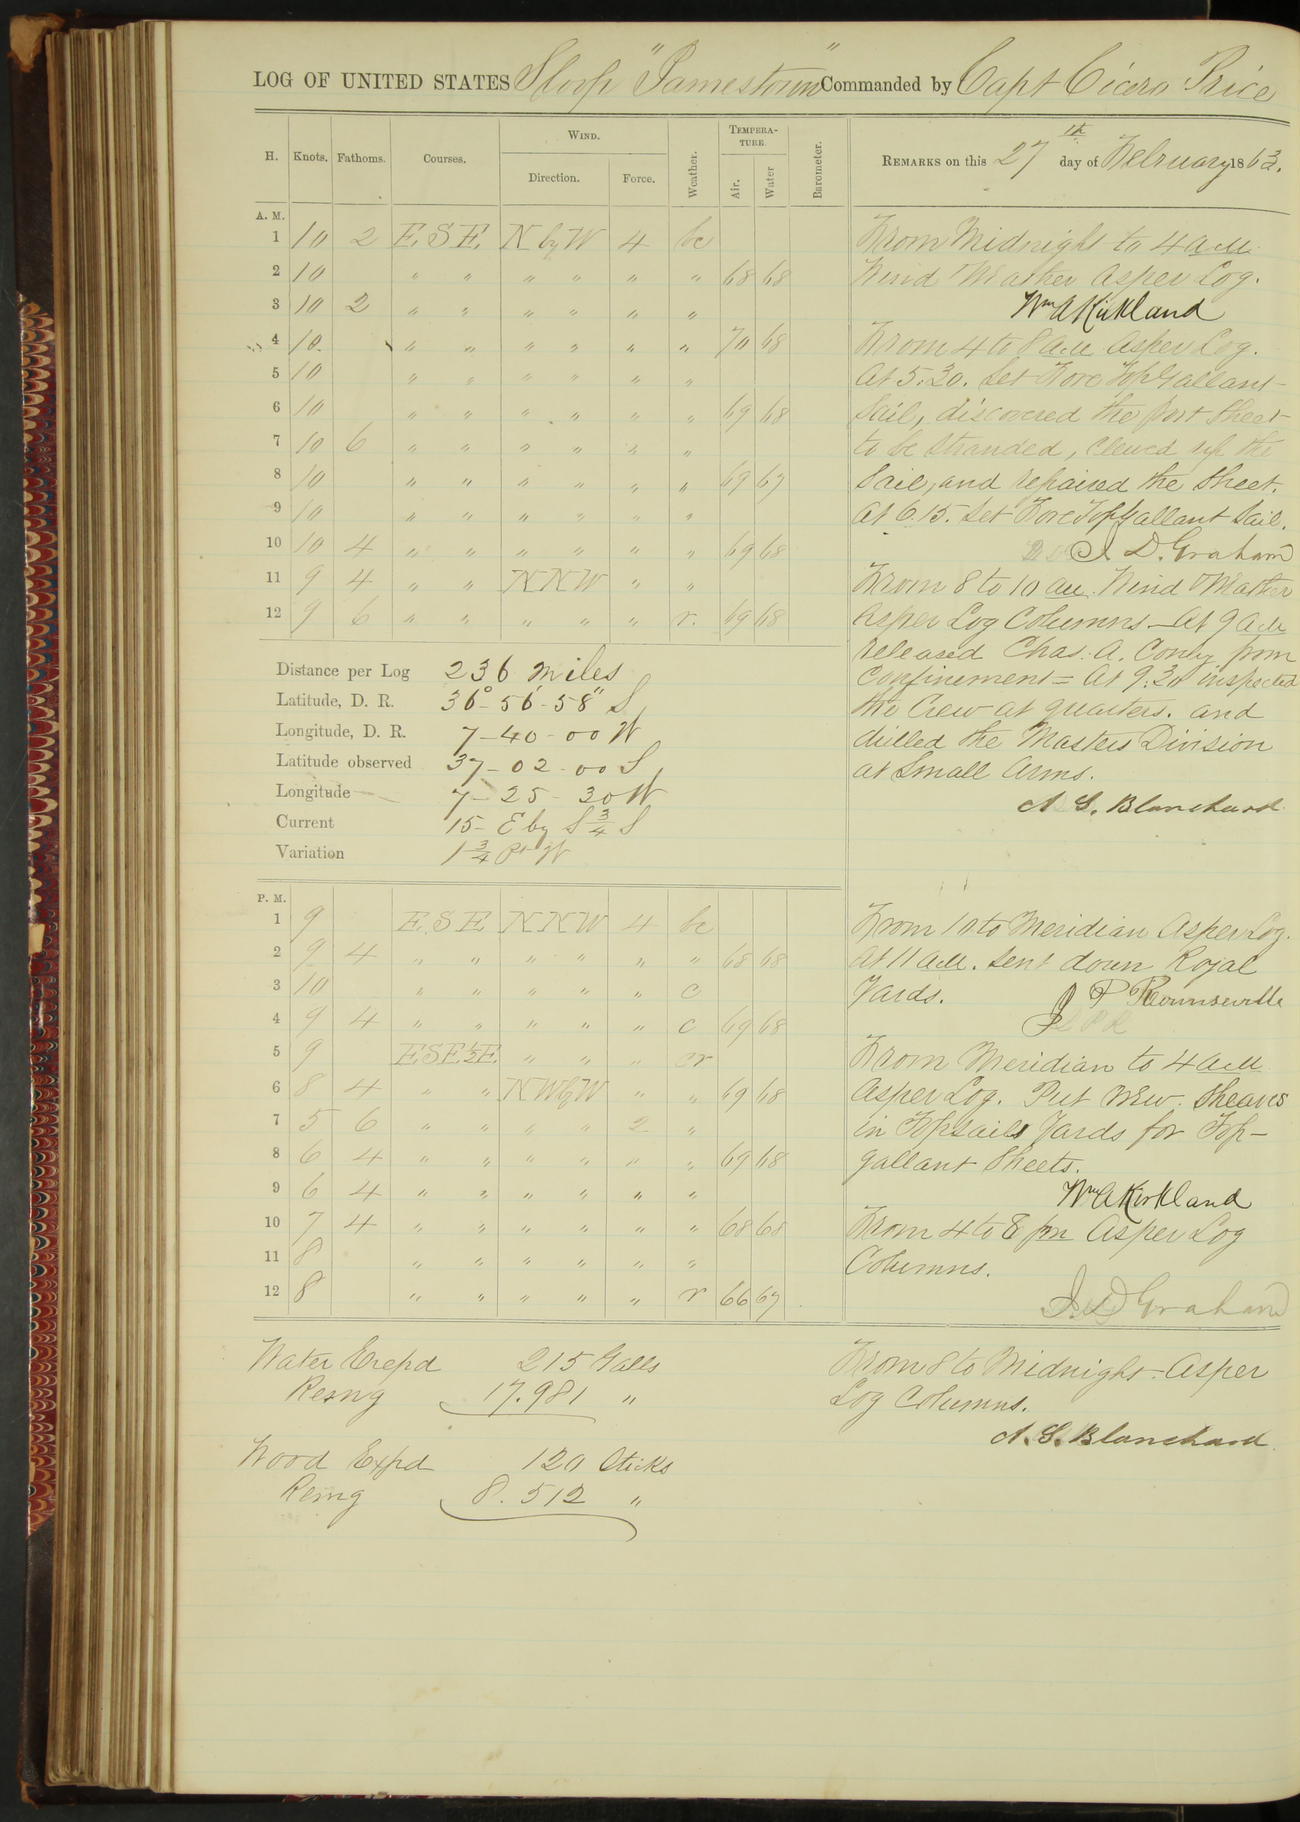 LOG OF UNITED STATES Sloop "Jamestown" Commanded by Capt Cicero Price
H. Knots. Fathoms. Courses. WIND. Direction. Force. Weather. TEMPERATURE. Air. Water Barometer. REMARKS on this 27th day of February 1863.
A. M.
1 10 2 E.S.E. N by W 4 bc
2 10 " " " " " " 68 68
3 10 2 " " " " " "
4 10 " " " " " " 70 68
5 10 " " " " " "
6 10 " " " " " " 69 68
7 10 6 " " " " " "
8 10 " " " " " " 69 67
9 10 " " " " " "
10 10 4 " " " " " " 69 68
11 9 4 " " NNW " "
12 9 6 " " " " " r. 69 68
Distance per Log 236 miles
Latitude, D. R. 36°-56'-58" S
Longitude, D. R. 7-40-00 W
Latitude observed 37-02-00 S
Longitude 7-25-30 W
Current 15- E by S 3/4 S
Variation 1 3/4 Pt W
P. M.
1 9 E.S.E NNW 4 bc
2 9 4 " " " " " " 68 68
3 10 " " " " " c
4 9 4 " " " " " c 69 68
5 9 ESE½E " " " cr
6 8 4 " " NWbyW " " 69 68
7 5 6 " " " " 2 "
8 6 4 " " " " " " 69 68
9 6 4 " " " " " "
10 7 4 " " " " " " 68 68
11 8 " " " " " "
12 8 " " " " " r 66 67
Water Expd 215 Galls
Remng 17.981 "
Wood Expd 120 Sticks
Remng 8.512 "
From Midnight to 4 a.m.
Wind Weather as per Log.
Wm A Kirkland
From 4 to 8 a.m as per Log.
At 5.30. Set Fore Top Gallant-
Sail, discovered the port sheet
to be stranded, clewed up the
sail, and repaired the sheet.
At 6.15. Set Fore Top Gallant Sail.
J. D. Graham
From 8 to 10 am. Wind & Weather
as per Log Columns — At 9 a.m
released Chas. A. from
Confinement — At 9.30 inspected
the Crew at quarters. and
drilled the Masters Division
at Small Arms.
A. S. Blanchard
From 10 to Meridian as per Log.
At 11 a.m. sent down Royal
Yards. J P Rounseville
From Meridian to 4 a.m
as per Log. Put new Sheaves
in Topsails Yards for Top-
gallant Sheets.
Wm A Kirkland
From 4 to 8 pm as per Log
Columns.
J. D Graham
From 8 to Midnight. as per
Log Columns.
A. S. Blanchard